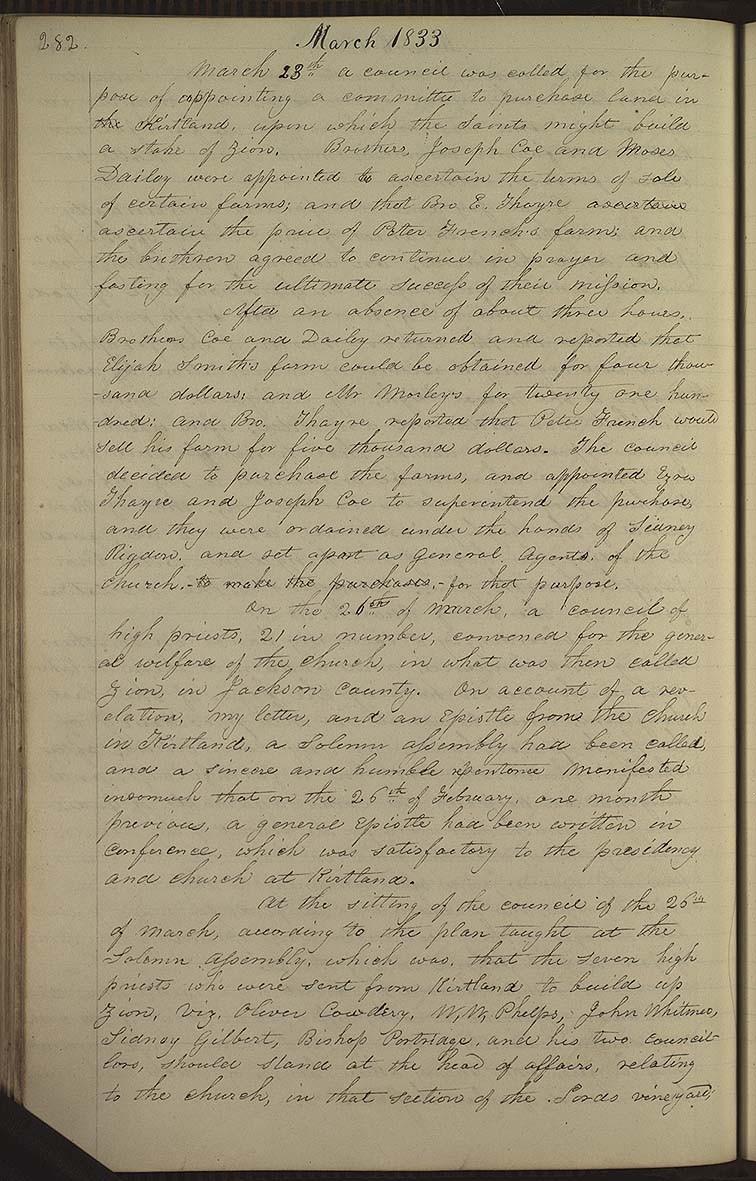 282.
March 1833
March 23th a council was called for the pur-
pose of appointing a committe to purchase land in
the Kirtland, upon which the saints might build
a stake of Zion. Brothers, Joseph Coe and Moses
Dailey were appointed to ascertain the terms of sale
of certain farms; and that Bro E. Thayre ascertain
ascertain the price of Peter French's farm; and
the brethren agreed to continue in prayer and
fasting for the ultimate success of their mission.
After an absence of about three hours,
Brothers Coe and Dailey returned and reported that
Elijah Smith's farm could be obtained for four thou-
-sand dollars; and Mr Morley's for twenty one hun-
-dred; and Bro. Thayre, reported that Peter French would
sell his farm for five thousand dollars. The council
decided to purchase the farms, and appointed Ezra
Thayre and Joseph Coe to superintend the purchase,
and they were ordained under the hands of Sidney
Rigdon, and set apart as general Agents, of the
Church.- to make the purchases,- for that purpose.
On the 26th of March, a council of
high priests, 21 in number, convened for the gener-
al welfare of the church, in what was then called
Zion, in Jackson County. On account of a rev-
elation, my letter, and an Epistle from the Church
in Kirtland, a Solemn assembly had been called,
and a sincere and humble repentance Manifested
insomuch that on the 26th of February, one month
previous, a general Epistle had been written in
conference, which was satisfactory to the presidency
and church at Kirtland.
At the sitting of the council of the 26th
of March, according to the plan taught at the
Solemn Assembly, which was, that the seven high
priests who were sent from Kirtland to build up
Zion, Viz, Oliver Cowdery, W, W, Phelps, John Whitmer,
Sidney Gilbert, Bishop Partridge, and his two council-
lors, should stand at the head of affairs, relating
to the church, in that section of the Lords vineyard;